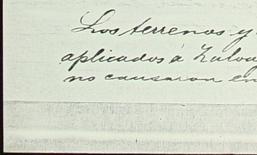 Los terrenos y
aplicados á
no causaron en